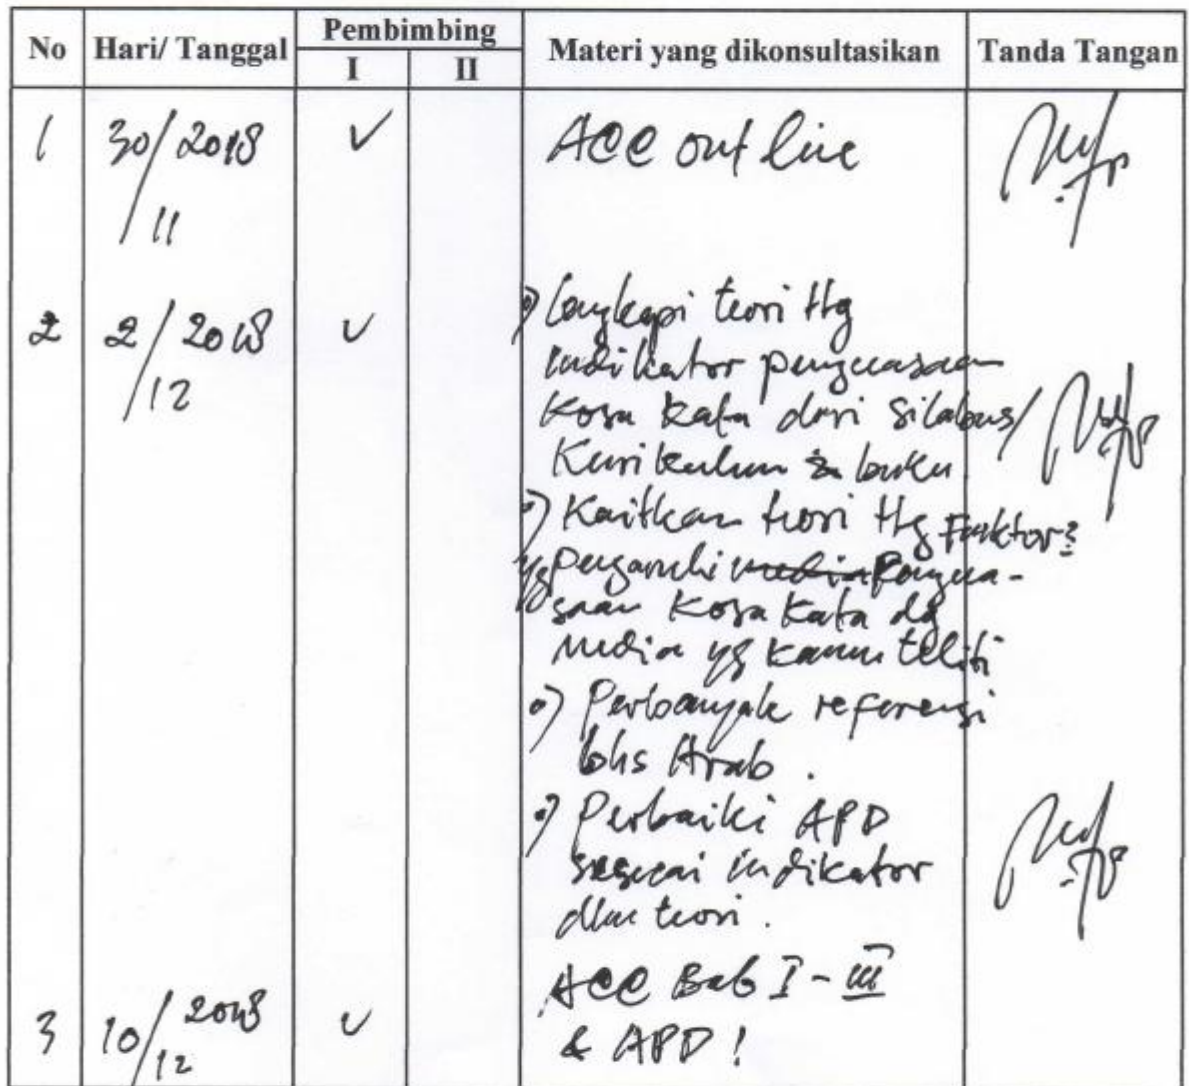 No Hari/ Tanggal Pembimbing Materi yang dikonsultasikan Tanda Tangan
I II
1 30/2018 ✓ ACC out line
11
2 2/2018 ✓ •) Lengkapi teori ttg
12 indikator penguasaan
kosa kata dari silabus/
Kurikulum & buku
•) Kaitkan teori ttg Faktor2
yg pengaruhi media Pengua-
saan kosa kata dg
media yg kamu teliti
•) Perbanyak referensi
bhs Arab.
•) Perbaiki APD
sesuai indikator
dlm teori.
ACC Bab I - III
3 10/2018 ✓ & APD !
12